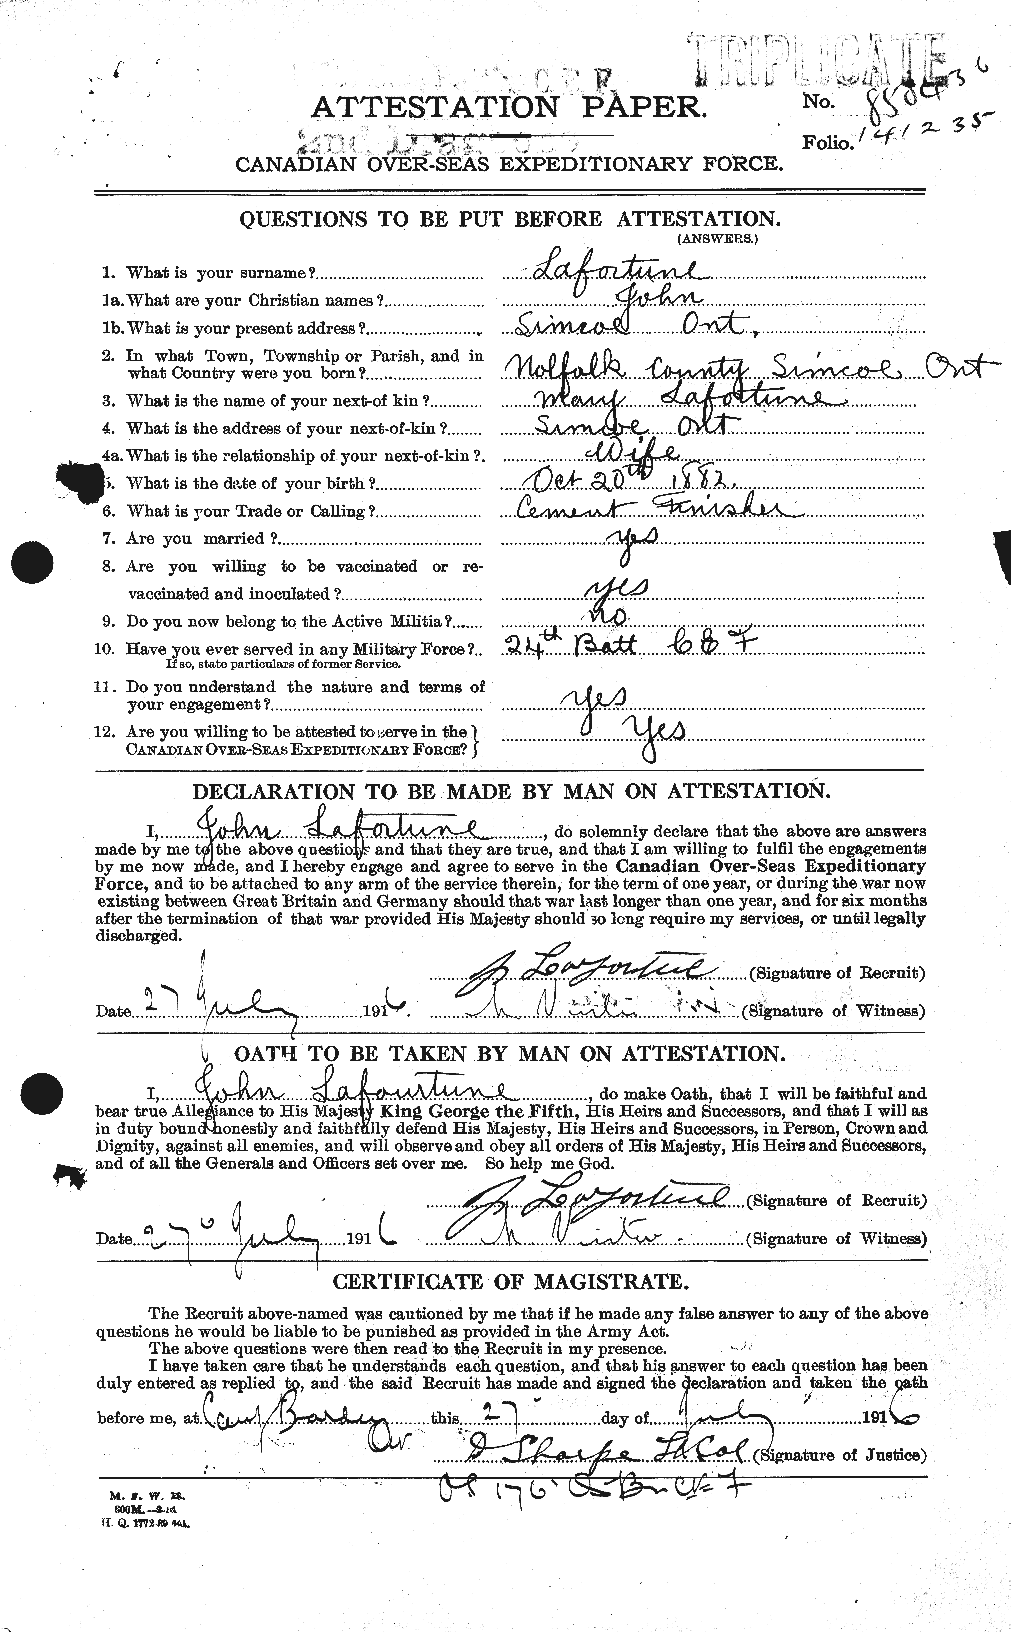 TRIPLICATE
ATTESTATION PAPER.
No. 850436
Folio. 141235
CANADIAN OVER-SEAS EXPEDITIONARY FORCE.
QUESTIONS TO BE PUT BEFORE ATTESTATION.
(ANSWERS.)
1. What is your surname? Lafortune
1a. What are your Christian names? John
1b. What is your present address? Simcoe Ont.
2. In what Town, Township or Parish, and in
what Country were you born? Nolfolk County Simcoe Ont
3. What is the name of your next-of kin? Mary Lafortune
4. What is the address of your next-of-kin? Simcoe Ont
4a. What is the relationship of your next-of-kin? Wife
5. What is the date of your birth? Oct 20th 1882.
6. What is your Trade or Calling? Cement Finisher
7. Are you married? yes
8. Are you willing to be vaccinated or re-
vaccinated and inoculated? yes
9. Do you now belong to the Active Militia? no
10. Have you ever served in any Military Force? 24th Batt C E F
If so, state particulars of former Service.
11. Do you understand the nature and terms of
your engagement? yes
12. Are you willing to be attested to serve in the
CANADIAN OVER-SEAS EXPEDITIONARY FORCE? Yes
DECLARATION TO BE MADE BY MAN ON ATTESTATION.
I, John Lafortune, do solemnly declare that the above are answers
made by me to the above questions and that they are true, and that I am willing to fulfil the engagements
by me now made, and I hereby engage and agree to serve in the Canadian Over-Seas Expeditionary
Force, and to be attached to any arm of the service therein, for the term of one year, or during the war now
existing between Great Britain and Germany should that war last longer than one year, and for six months
after the termination of that war provided His Majesty should so long require my services, or until legally
discharged.
J Lafortune (Signature of Recruit)
Date 27 July 1916. (Signature of Witness)
OATH TO BE TAKEN BY MAN ON ATTESTATION.
I, John Lafourtune, do make Oath, that I will be faithful and
bear true Allegiance to His Majesty King George the Fifth, His Heirs and Successors, and that I will as
in duty bound honestly and faithfully defend His Majesty, His Heirs and Successors, in Person, Crown and
Dignity, against all enemies, and will observe and obey all orders of His Majesty, His Heirs and Successors,
and of all the Generals and Officers set over me. So help me God.
J Lafortune (Signature of Recruit)
Date 27 July 1916 (Signature of Witness)
CERTIFICATE OF MAGISTRATE.
The Recruit above-named was cautioned by me that if he made any false answer to any of the above
questions he would be liable to be punished as provided in the Army Act.
The above questions were then read to the Recruit in my presence.
I have taken care that he understands each question, and that his answer to each question has been
duly entered as replied to, and the said Recruit has made and signed the declaration and taken the oath
before me, at Camp Borden this 27 day of July 1916
D Sharpe Lt Col (Signature of Justice)
OC 176
M. F. W. 23.
H. Q. 1772-39-841.